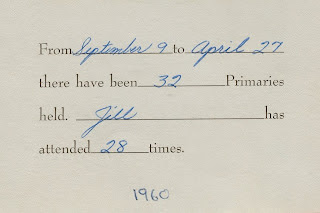 From September 9 to April 27
there have been 32 Primaries
held. Jill has
attended 28 times.
1960